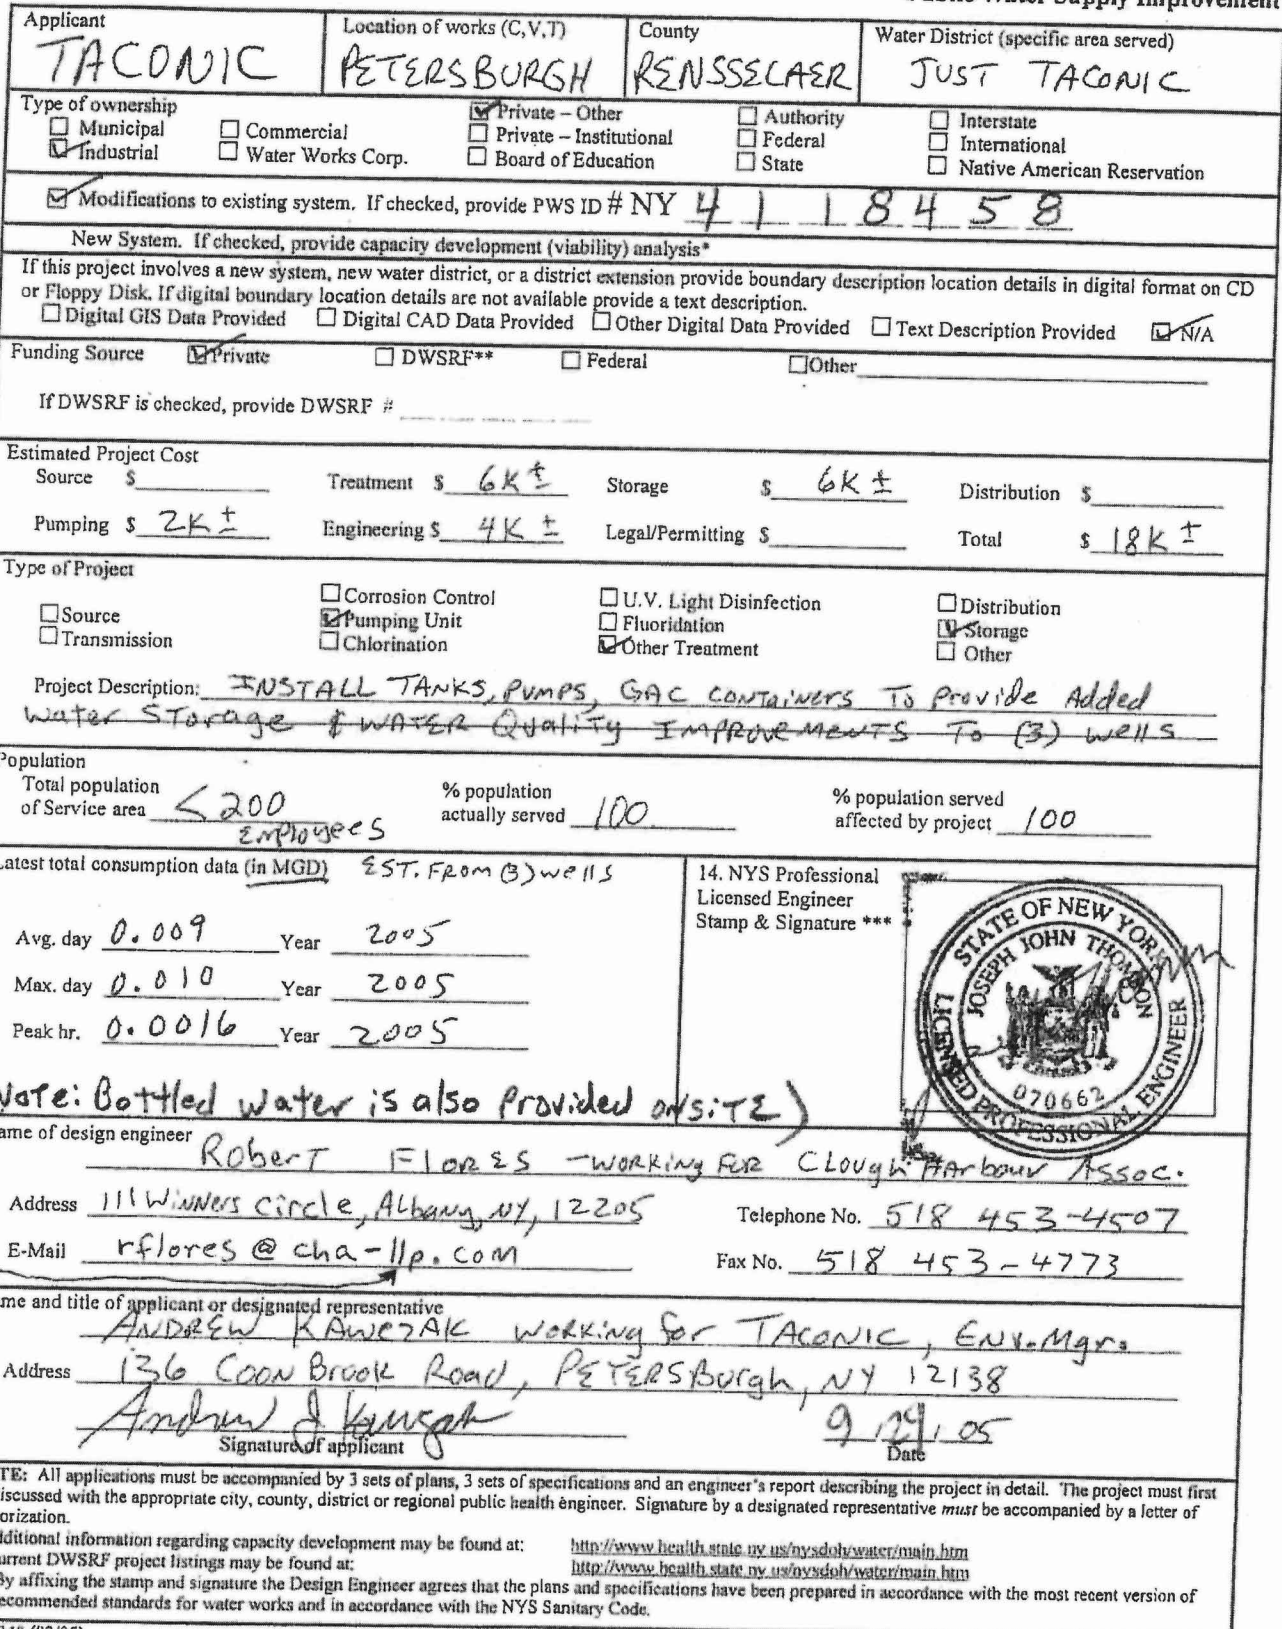 Water Supply Improvement
Applicant Location of works (C,V,T) County Water District (specific area served)
TACONIC PETERSBURGH RENSSELAER JUST TACONIC
Type of ownership
Municipal Commercial Private – Other Authority Interstate
Industrial Water Works Corp. Private – Institutional Federal International
Board of Education State Native American Reservation
Modifications to existing system. If checked, provide PWS ID # NY 4 1 1 8 4 5 8
New System. If checked, provide capacity development (viability) analysis*
If this project involves a new system, new water district, or a district extension provide boundary description location details in digital format on CD
or Floppy Disk. If digital boundary location details are not available provide a text description.
Digital GIS Data Provided Digital CAD Data Provided Other Digital Data Provided Text Description Provided N/A
Funding Source Private DWSRF** Federal Other
If DWSRF is checked, provide DWSRF #
Estimated Project Cost
Source $ Treatment $ 6K ± Storage $ 6K ± Distribution $
Pumping $ 2K ± Engineering $ 4K ± Legal/Permitting $ Total $ 18K ±
Type of Project
Corrosion Control U.V. Light Disinfection Distribution
Source Pumping Unit Fluoridation Storage
Transmission Chlorination Other Treatment Other
Project Description: INSTALL TANKS, PUMPS, GAC CONTAINERS TO PROVIDE ADDED
WATER STORAGE & WATER QUALITY IMPROVEMENTS TO (3) WELLS
Population
Total population % population % population served
of Service area < 200 actually served 100 affected by project 100
EMPLOYEES
Latest total consumption data (in MGD) EST. FROM (3) wells
14. NYS Professional
Licensed Engineer
Stamp & Signature ***
STATE OF NEW YORK
JOSEPH JOHN THOMSON
070662
LICENSED PROFESSIONAL ENGINEER
Avg. day 0.009 Year 2005
Max. day 0.010 Year 2005
Peak hr. 0.0016 Year 2005
Note: Bottled water is also provided onsite)
ame of design engineer
Robert Flores - working for Clough Harbour Assoc.
Address 111 Winners Circle, Albany, NY, 12205 Telephone No. 518 453-4507
E-Mail rflores@cha-llp.com Fax No. 518 453-4773
me and title of applicant or designated representative
ANDREW KAWCZAK working for TACONIC, Env. Mgr.
Address 136 Coon Brook Road, Petersburgh, NY 12138
Andrew J Kawczak 9/29/05
Signature of applicant Date
TE: All applications must be accompanied by 3 sets of plans, 3 sets of specifications and an engineer's report describing the project in detail. The project must first
iscussed with the appropriate city, county, district or regional public health engineer. Signature by a designated representative must be accompanied by a letter of
orization.
dditional information regarding capacity development may be found at: http://www.health.state.ny.us/nysdoh/water/main.htm
urrent DWSRF project listings may be found at: http://www.health.state.ny.us/nysdoh/water/main.htm
By affixing the stamp and signature the Design Engineer agrees that the plans and specifications have been prepared in accordance with the most recent version of
ecommended standards for water works and in accordance with the NYS Sanitary Code.